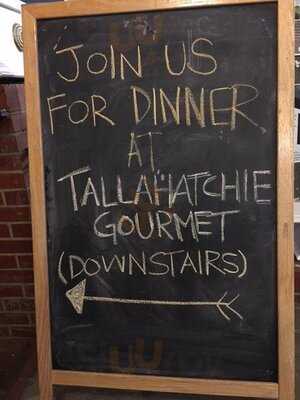 JOIN US
FOR DINNER
AT
TALLAHATCHIE
GOURMET
(DOWNSTAIRS)